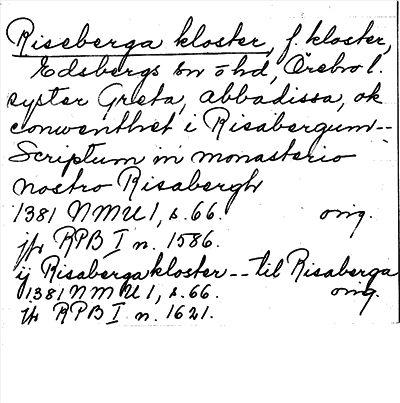 Riseberga kloster, f. kloster,
Edsbergs sn o hd, Örebro l.
syster Greta, abbadissa, ok
conwenthet i Risabergum --
Scriptum in monasterio
nostro Risabergh
1381 NMU 1, s. 66. orig.
jfr RPB I n. 1586.
ij Risaberga kloster -- til Risaberga
1381 NMU 1, s. 66. orig.
jfr RPB I n. 1621.